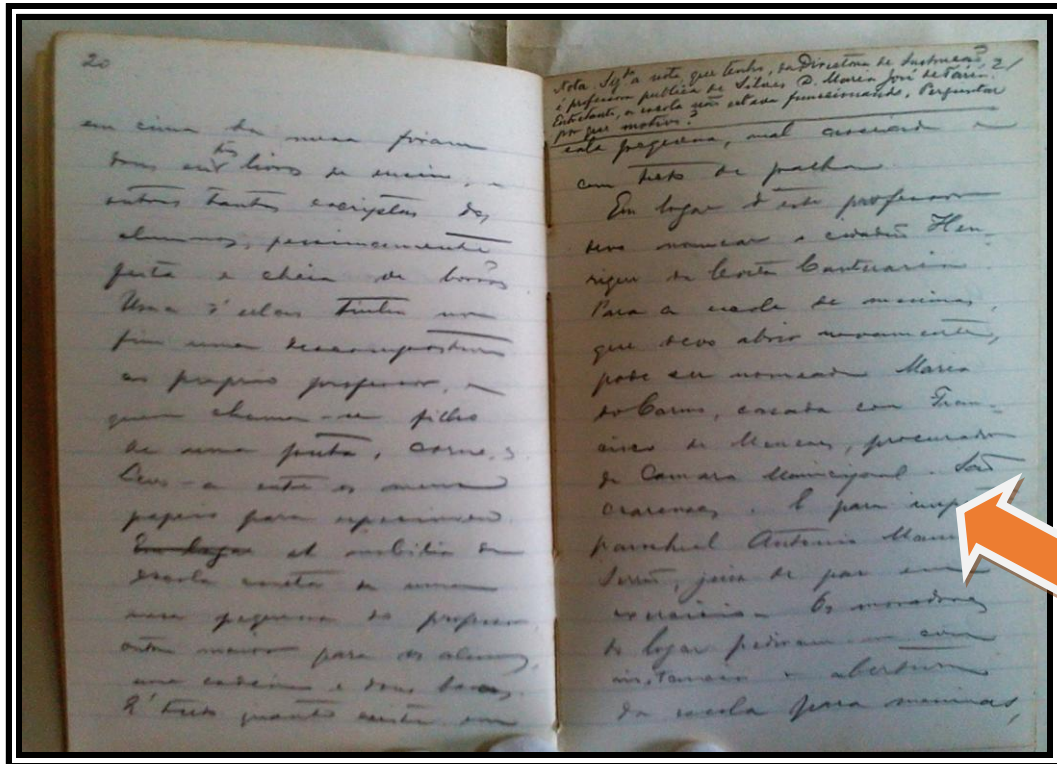 20
em cima da mesa foram
dous ou tres livros de ensino, e
outros tantos escriptos dos
alumnos, pessimamente
feita e cheia de borrões
Uma d'ellas tinha no
fim uma descompostura
ao proprio professor, a
quem chamava-se filho
de uma puta, corno,
entre os meus
papeis para specimen.
Em logar A mobilia da
escola consta de uma
mesa pequena do professor,
outra maior para os alumnos,
uma cadeira e dous bancos.
E' tudo quanto existe em
Nota. Segdo a nota, que tenho, da Directoria de Instrucção, 21
é professora publica de Silves D. Maria José de Faria.
Entretanto, a escola não estava funccionando. Perguntar
por que motivo?
sala pequena, mal asseiada e
com tecto de palha.
Em logar d'este professor
devo nomear o cidadão Hen-
rique da Costa Cantuaria
Para a escola de meninas,
que devo abrir novamente,
pode ser nomeada Maria
do Carmo, casada com Fran-
cisco de Menezes, procurador
da Camara Municipal. São
cearenses. E para insp
parochial Antonio Maria
juiz de paz em
exercicio. Os moradores
do logar pediram-me com
instancia a abertura
da escola para meninas,